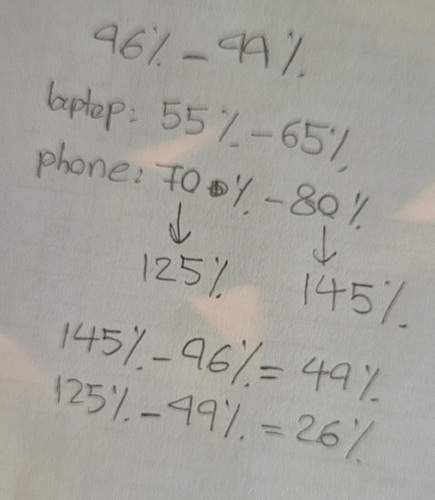 96% - 99%
laptop: 55% - 65%
phone: 70% - 80%
↓ ↓
125% 145%
145% - 96% = 49%
125% - 99% = 26%